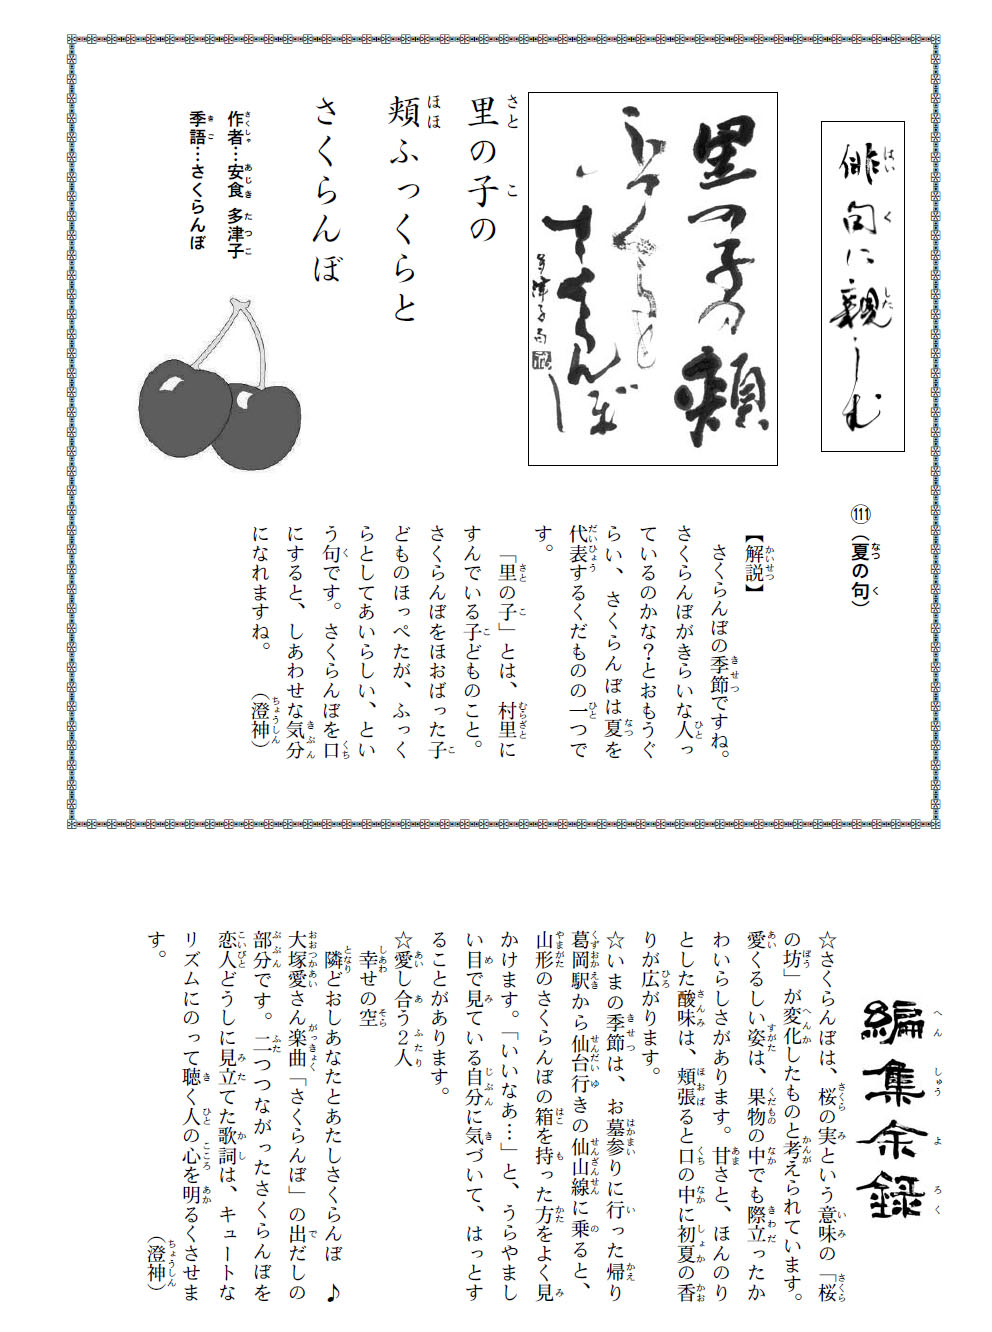 俳句に親しむ
⑪（夏の句）
里の子の頬
ふっくらと
さくらんぼ
多津子句
里の子の
頬ふっくらと
さくらんぼ
作者…安食 多津子
季語…さくらんぼ
【解説】
さくらんぼの季節ですね。
さくらんぼがきらいな人っ
ているのかな？とおもうぐ
らい、さくらんぼは夏を
代表するくだものの一つで
す。
「里の子」とは、村里に
すんでいる子どものこと。
さくらんぼをほおばった子
どものほっぺたが、ふっく
らとしてあいらしい、とい
う句です。さくらんぼを口
にすると、しあわせな気分
になれますね。
（澄神）
編集余録
☆さくらんぼは、桜の実という意味の「桜
の坊」が変化したものと考えられています。
愛くるしい姿は、果物の中でも際立ったか
わいらしさがあります。甘さと、ほんのり
とした酸味は、頬張ると口の中に初夏の香
りが広がります。
☆いまの季節は、お墓参りに行った帰り
葛岡駅から仙台行きの仙山線に乗ると、
山形のさくらんぼの箱を持った方をよく見
かけます。「いいなあ…」と、うらやまし
い目で見ている自分に気づいて、はっとす
ることがあります。
☆愛し合う２人
幸せの空
隣どおしあなたとあたしさくらんぼ ♪
大塚愛さん楽曲「さくらんぼ」の出だしの
部分です。二つつながったさくらんぼを
恋人どうしに見立てた歌詞は、キュートな
リズムにのって聴く人の心を明るくさせま
す。
（澄神）